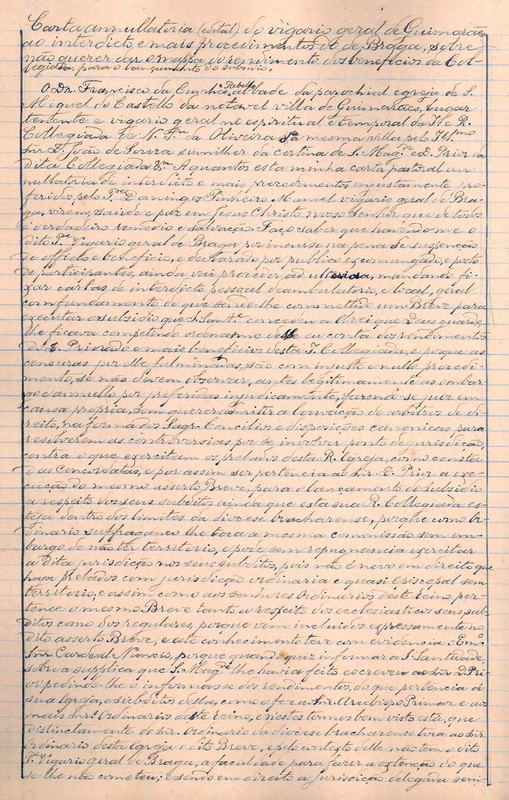 Carta annullatoria (edital) do vigario geral de Guimarães
ao interdicto e mais procedimentos do de Braga, sobre
não querer dar o mappa do rendimento dos beneficios da Col-
legiada, para o lançamento do subsidio.
O Dr. Francisco da Cunha Rebello, abbade da parochial egreja de S.
Miguel do Castello da notavel villa de Guimarães, lugar
tenente e vigario geral no espiritual e temporal da I. e R.
Collegiada de N. Sra. da Oliveira da mesma villa pelo Illmo
Snr. D. João de Souza sumilher da cortina de S. Magde e D. Prior da
dita Collegiada Etc. A quantos esta minha carta pastoral an-
nullatoria de interdicto e mais procedimentos injustamente pro-
feridos pelo Sr. Domingos Pinheiro Manuel vigario geral de Bra-
ga, virem, saude e paz em Jesus Christo, nosso Senhor que de todos
é verdadeiro remedio e salvação. Faço saber que havendo-me o
dito Sr. Vigario geral de Braga por incurso na pena de suspenção
de officio e beneficio, e declarado por publico excomungado, e posto
de participantes, ainda vai proceder ad ulteriora, mandando fi-
xar cartas de interdicto pessoal deambulatorio, e local, geral
com fundamento de que sendo-lhe commettido um Breve para
executar o subsidio que S. Santde concedeu a Elrei que Deus guarde,
lhe ficava competindo ordenar-me desse eu conta dos rendimentos
do D. Priorado e mais beneficios desta I. Collegiada, e porque as
censuras por elle fulminadas, são com injusto e nullo procedi-
mento, se não devem observar, antes legitimamente as embar-
go e annullo por proferidas injudicamente, fazendo-se juiz em
causa propria, sem querer admitir a louvação de arbitros de di-
reito, na forma dos Sagr. Concilios e disposições canonicas para
resolverem as controversias por se involver ponto de jurisdicção,
contra o que exercitam os prelados desta R. Egreja, como consta
das Concordatas, e por assim ser pertencia ao Snr. D. Prior a exe-
cução do mesmo asserto Breve, para o lançamento do subsidio
a respeito dos seus subditos ainda que esta sua R. Collegiada es-
teja dentro dos limites da diocese bracharense, porque como Or-
dinario suffraganeo lhe toca a mesma commissão sem em-
bargo de não ter territorio, e pode sem repugnancia exercitar
a dita jurisdicção nos seus subditos, pois não é novo em direito que
haja Prelados com jurisdicção ordinaria e quasi Episcopal sem
territorio, e assim como aos senhores Ordinarios deste reino per-
tence o mesmo Breve tanto a respeito dos ecclesiasticos seus sub-
ditos como dos regulares, porque vem incluidos expressamente no
dito asserto Breve, e este conhecimento teve com evidencia o Emo
Snr. Cardeal Nuncio, porque quando quiz informar a S. Santidade,
sobre a supplica que S. Magde lhe havia feito escreveu ao Snr. D. Pri-
or pedindo-lhe o informasse dos rendimentos, do que pertencia á
sua Egreja, e subditos della, como o fez ao Snr. Arcebispo Primaz e aos
mais Snrs. Ordinarios deste reino, e nestes termos bem visto está, que
distinctamente do Snr. Ordinario da diocese bracharense toca ao Snr.
Ordinario desta Egreja o dito Breve, e pelo contexto delle não tem o dito
Sr. Vigario geral de Braga, a faculdade para fazer a extenção do que
se lhe não cometeu; e sendo em direito a jurisdicção delegada sem-